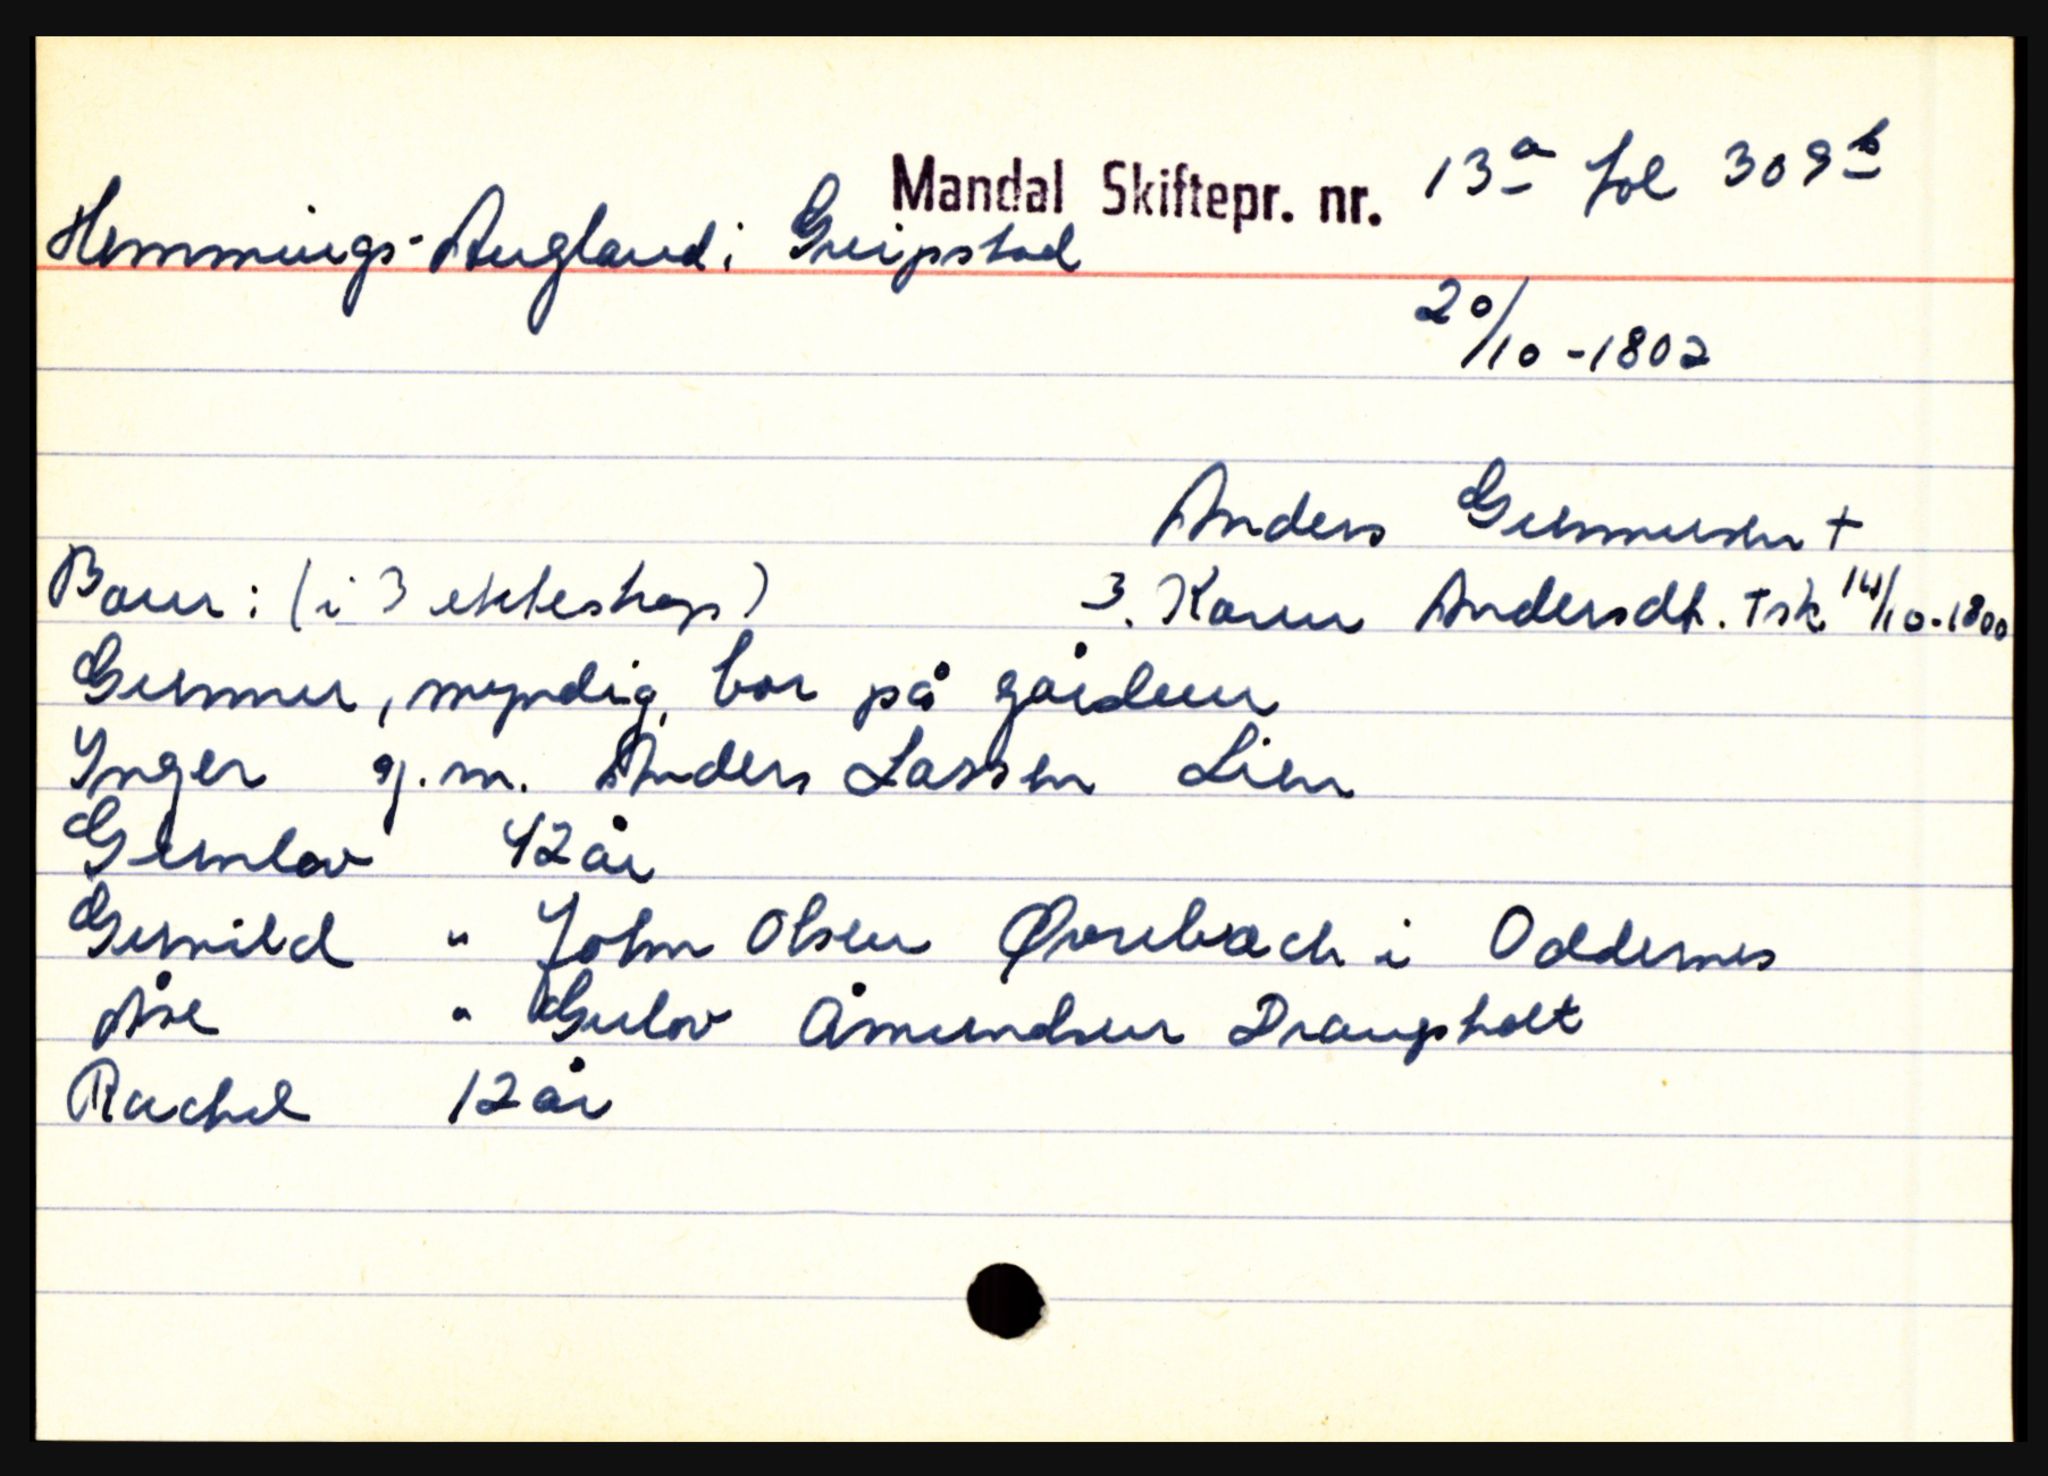 Mandal Skiftepr. nr. 13a fol 309b
Hemmings-Augland i Greipstad
20/10-1802
Anders Gunnusen +
Barn: (i 3 ekteskap) 3. Karen Andersdt. + sk 14/10-1800
Gunnar, myndig, bor på gården
Inger g.m. Anders Lassen Lien
Gunlov 42 år
Gunild " John Olsen Øvrebach i Oddernes
Åse " Gulov Åmundsen Drangsholt
Rachel 12 år